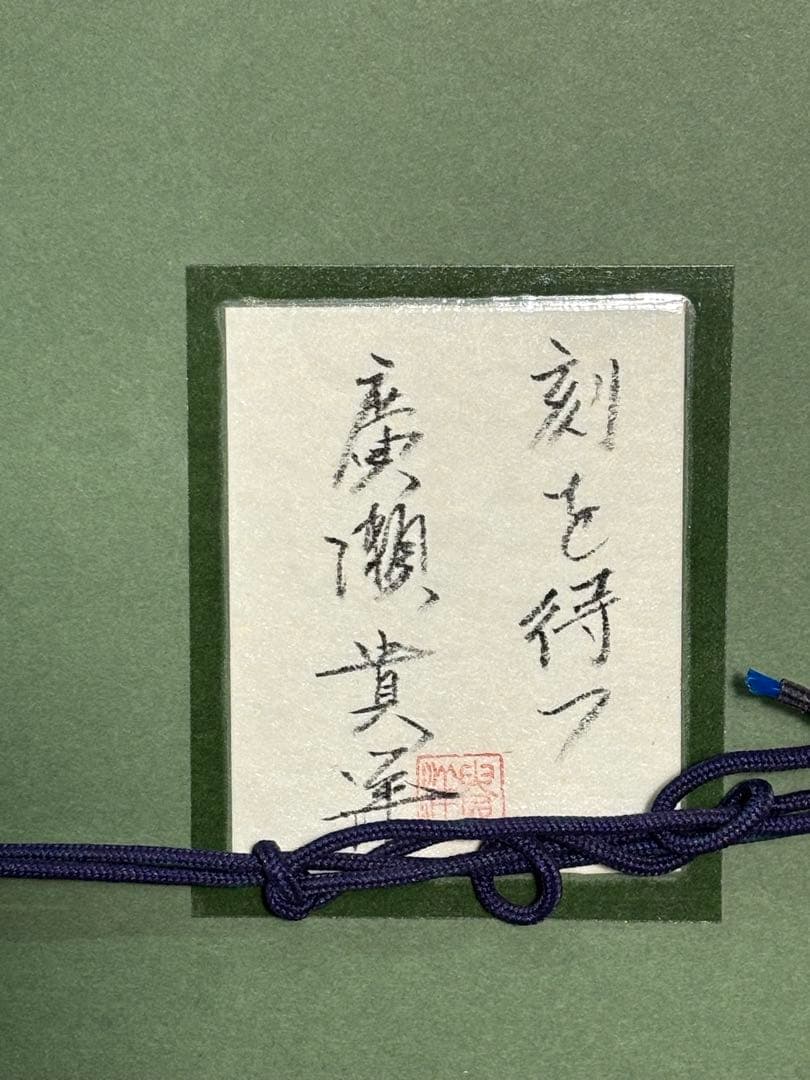 刻を待つ
廣瀬貴洋